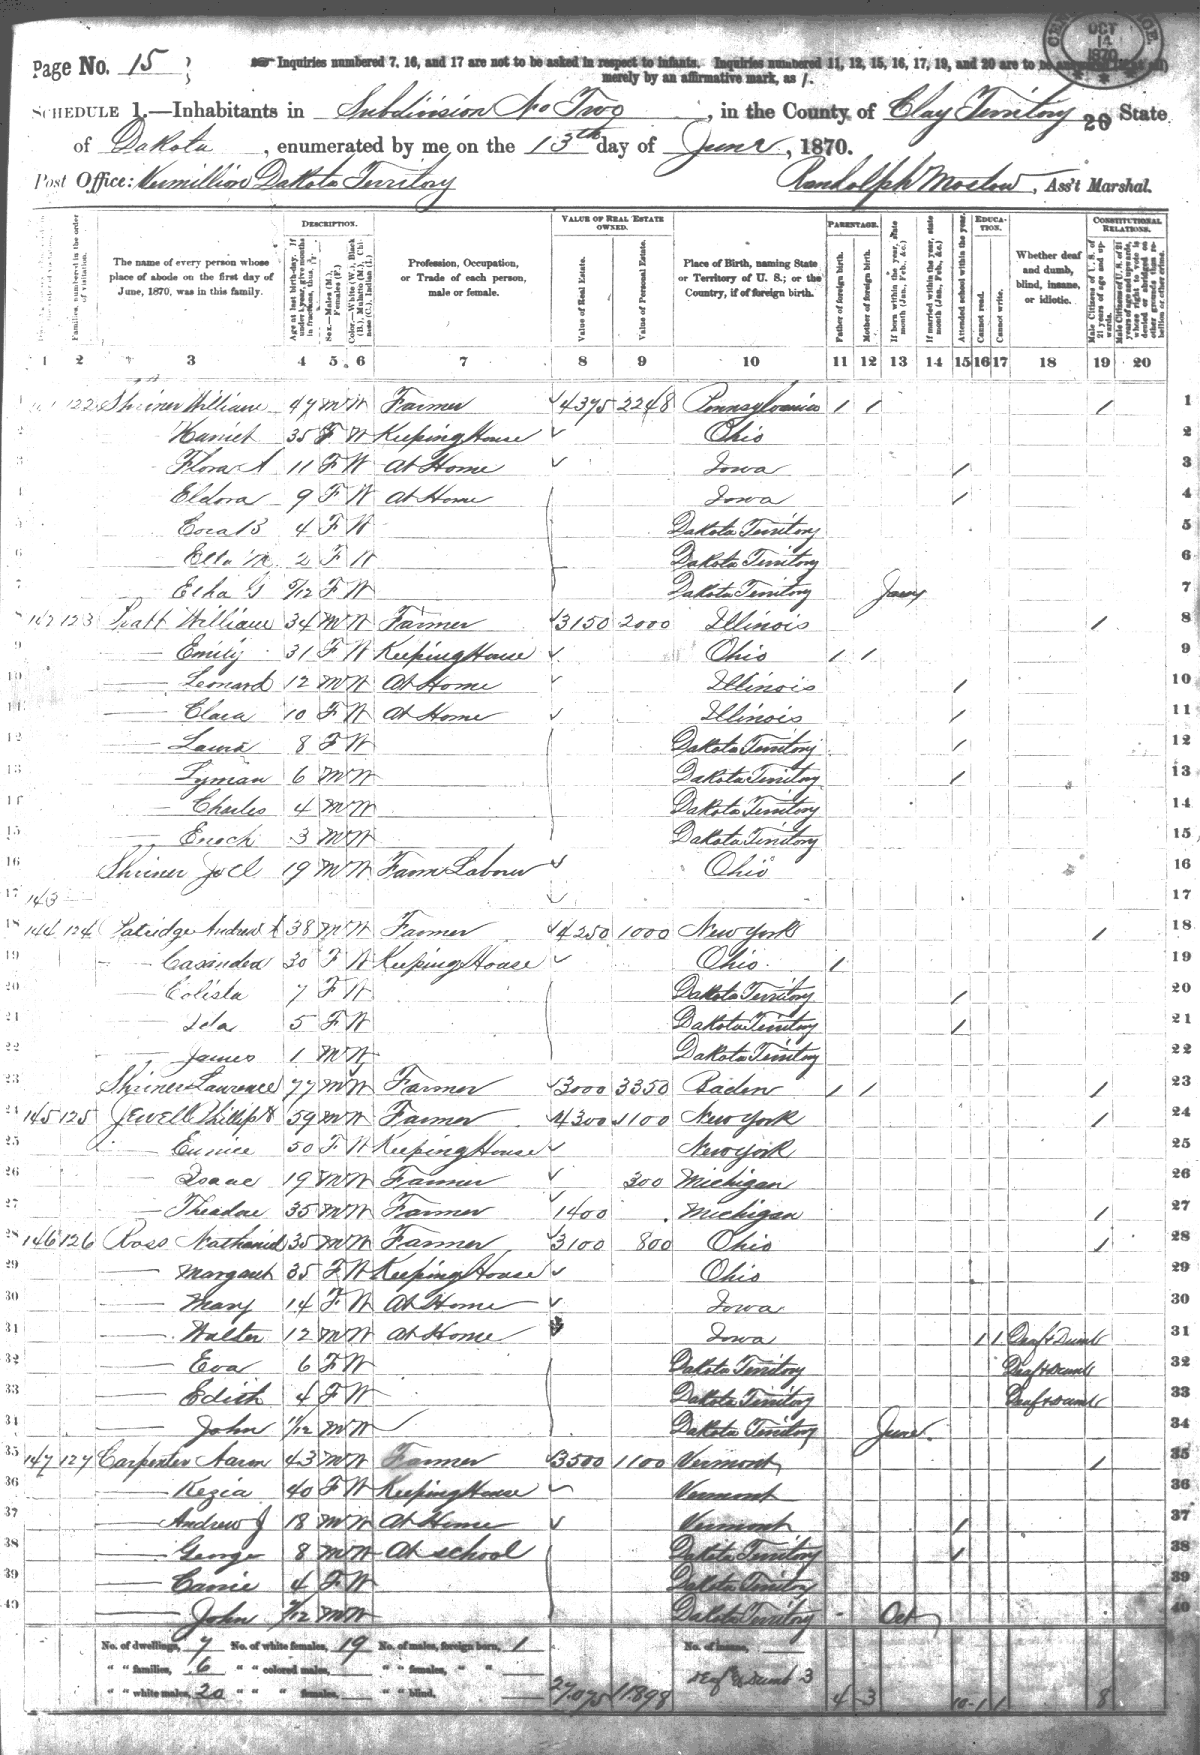 Page No. 15
Inquiries numbered 7, 16, and 17 are not to be asked in respect to infants. Inquiries numbered 11, 12, 15, 16, 17, 19, and 20 are to be
merely by an affirmative mark, as /.
OCT 14 1870
SCHEDULE 1.—Inhabitants in Subdivision No Two, in the County of Clay Territory State
26
of Dakota, enumerated by me on the 13th day of June, 1870.
Post Office: Vermillion Dakota Territory Randolph, Ass't Marshal.
DESCRIPTION. VALUE OF REAL ESTATE OWNED. PARENTAGE. EDUCATION. CONSTITUTIONAL RELATIONS.
Families, numbered in the order of visitation.
The name of every person whose place of abode on the first day of June, 1870, was in this family.
Age at last birth-day. If under 1 year, give months in fractions, thus,
Sex.—Males (M.), Females (F.)
Color.—White (W.), Black (B.), Mulatto (M.), Chinese (C.), Indian (I.)
Profession, Occupation, or Trade of each person, male or female.
Value of Real Estate.
Value of Personal Estate.
Place of Birth, naming State or Territory of U. S.; or the Country, if of foreign birth.
Father of foreign birth.
Mother of foreign birth.
If born within the year, state month (Jan., Feb., &c.)
If married within the year, state month (Jan., Feb., &c.)
Attended school within the year.
Cannot read.
Cannot write.
Whether deaf and dumb, blind, insane, or idiotic.
Male Citizens of U. S. of 21 years of age and upwards.
Male Citizens of U. S. of 21 years of age and upwards, whose right to vote is denied or abridged on other grounds than rebellion or other crime.
1 2 3 4 5 6 7 8 9 10 11 12 13 14 15 16 17 18 19 20
122 Shriner William 47 M W Farmer 4375 2248 Pennsylvania / / / 1
2 Harriet 35 F W Keeping House Ohio 2
3 Flora A 11 F W At Home Iowa / 3
4 Eldora 9 F W At Home Iowa / 4
5 Cora B 4 F W Dakota Territory 5
6 Etta M 2 F W Dakota Territory 6
7 G 5/12 F W Dakota Territory Jany 7
8 142 123 Pratt William 34 M W Farmer 3150 2000 Illinois / 8
9 Emily 31 F W Keeping House Ohio / / 9
10 Leonard 12 M W At Home Illinois / 10
11 Clara 10 F W At Home Illinois / 11
12 Laura 8 F W Dakota Territory / 12
13 Lyman 6 M W Dakota Territory / 13
14 Charles 4 M W Dakota Territory 14
15 Enoch 3 M W Dakota Territory 15
16 Shriner Joel 19 M W Farm Laborer Ohio 16
17 143 17
18 144 124 Patridge Andrew 38 M W Farmer 4250 1000 New York / 18
19 Casandea 30 F W Keeping House Ohio / 19
20 Colista 7 F W Dakota Territory / 20
21 Ida 5 F W Dakota Territory / 21
22 James 1 M W Dakota Territory 22
23 Shriner Lawrence 77 M W Farmer 3000 3350 Baden / / / 23
24 145 125 Jewell Phillip 59 M W Farmer 4300 1100 New York / 24
25 Eunice 50 F W Keeping House New York 25
26 Isaac 19 M W Farmer 300 Michigan 26
27 Theadore 35 M W Farmer 1400 Michigan / 27
28 146 126 Ross Nathaniel 35 M W Farmer 3100 800 Ohio / 28
29 Margaret 35 F W Keeping House Ohio 29
30 Mary 14 F W At Home Iowa 30
31 Walter 12 M W At Home Iowa 1 1 Deaf & Dumb 31
32 Eva 6 F W Dakota Territory Deaf & Dumb 32
33 Edith 4 F W Dakota Territory Deaf & dumb 33
34 John 11/12 M W Dakota Territory June 34
35 147 127 Carpenter Aaron 43 M W Farmer 3500 1100 Vermont / 35
36 Kezia 40 F W Keeping House Vermont 36
37 Andrew J 18 M W At Home Vermont / 37
38 George 8 M W At school Dakota Territory / 38
39 Carrie 4 F W Dakota Territory 39
40 John M W Dakota Territory Oct 40
No. of dwellings, 7 No. of white females, 19 No. of males, foreign born, 1 No. of insane,
" " families, 6 " " colored males, " " females, " " Deaf & Dumb 3
" " white males, 20 " " " females, " " blind, 27,075 11898 4 3 10 1 1 8